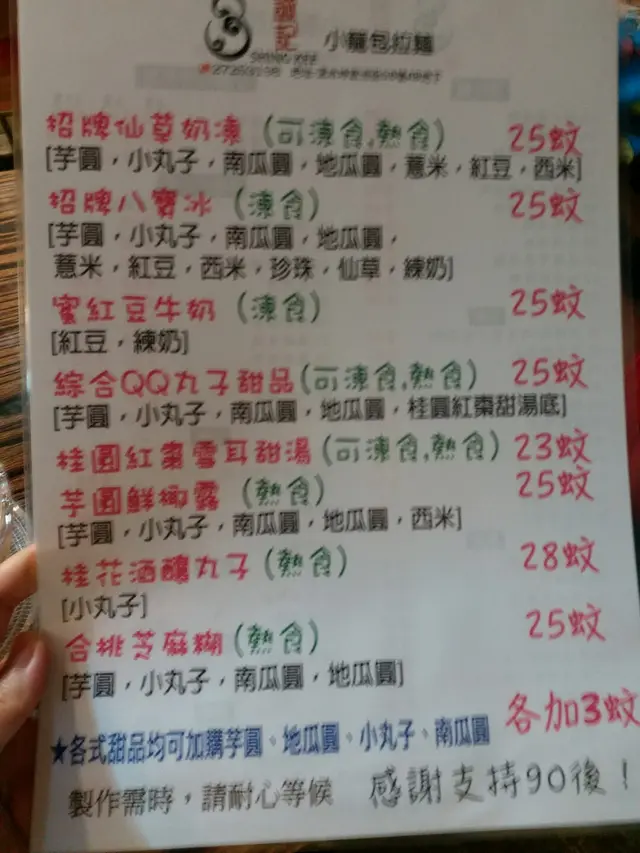 記
小籠包拉麵
SHING KEE
招牌仙草奶凍(可凍食,熱食) 25蚊
[芋圓,小丸子,南瓜圓,地瓜圓,薏米,紅豆,西米]
招牌八寶冰(凍食) 25蚊
[芋圓,小丸子,南瓜圓,地瓜圓,
薏米,紅豆,西米,珍珠,仙草,練奶]
蜜紅豆牛奶(凍食) 25蚊
[紅豆,練奶]
綜合QQ丸子甜品(可凍食,熱食) 25蚊
[芋圓,小丸子,南瓜圓,地瓜圓,桂圓紅棗甜湯底]
桂圓紅棗雪耳甜湯(可凍食,熱食) 23蚊
芋圓鮮椰露(熱食) 25蚊
[芋圓,小丸子,南瓜圓,地瓜圓,西米]
桂花酒釀丸子(熱食) 28蚊
[小丸子]
合桃芝麻糊(熱食) 25蚊
[芋圓,小丸子,南瓜圓,地瓜圓]
★各式甜品均可加購芋圓、地瓜圓、小丸子、南瓜圓 各加3蚊
製作需時,請耐心等候 感謝支持90後!